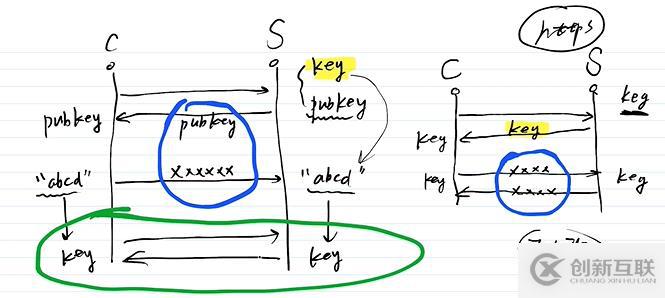 https
C S
key
pubkey
pubkey pubkey
"abcd" xxxxxx "abcd"
key key
C S
key
key
key
key xxxx key
xxxx
创新互联
CHUANG XIN HU LIAN